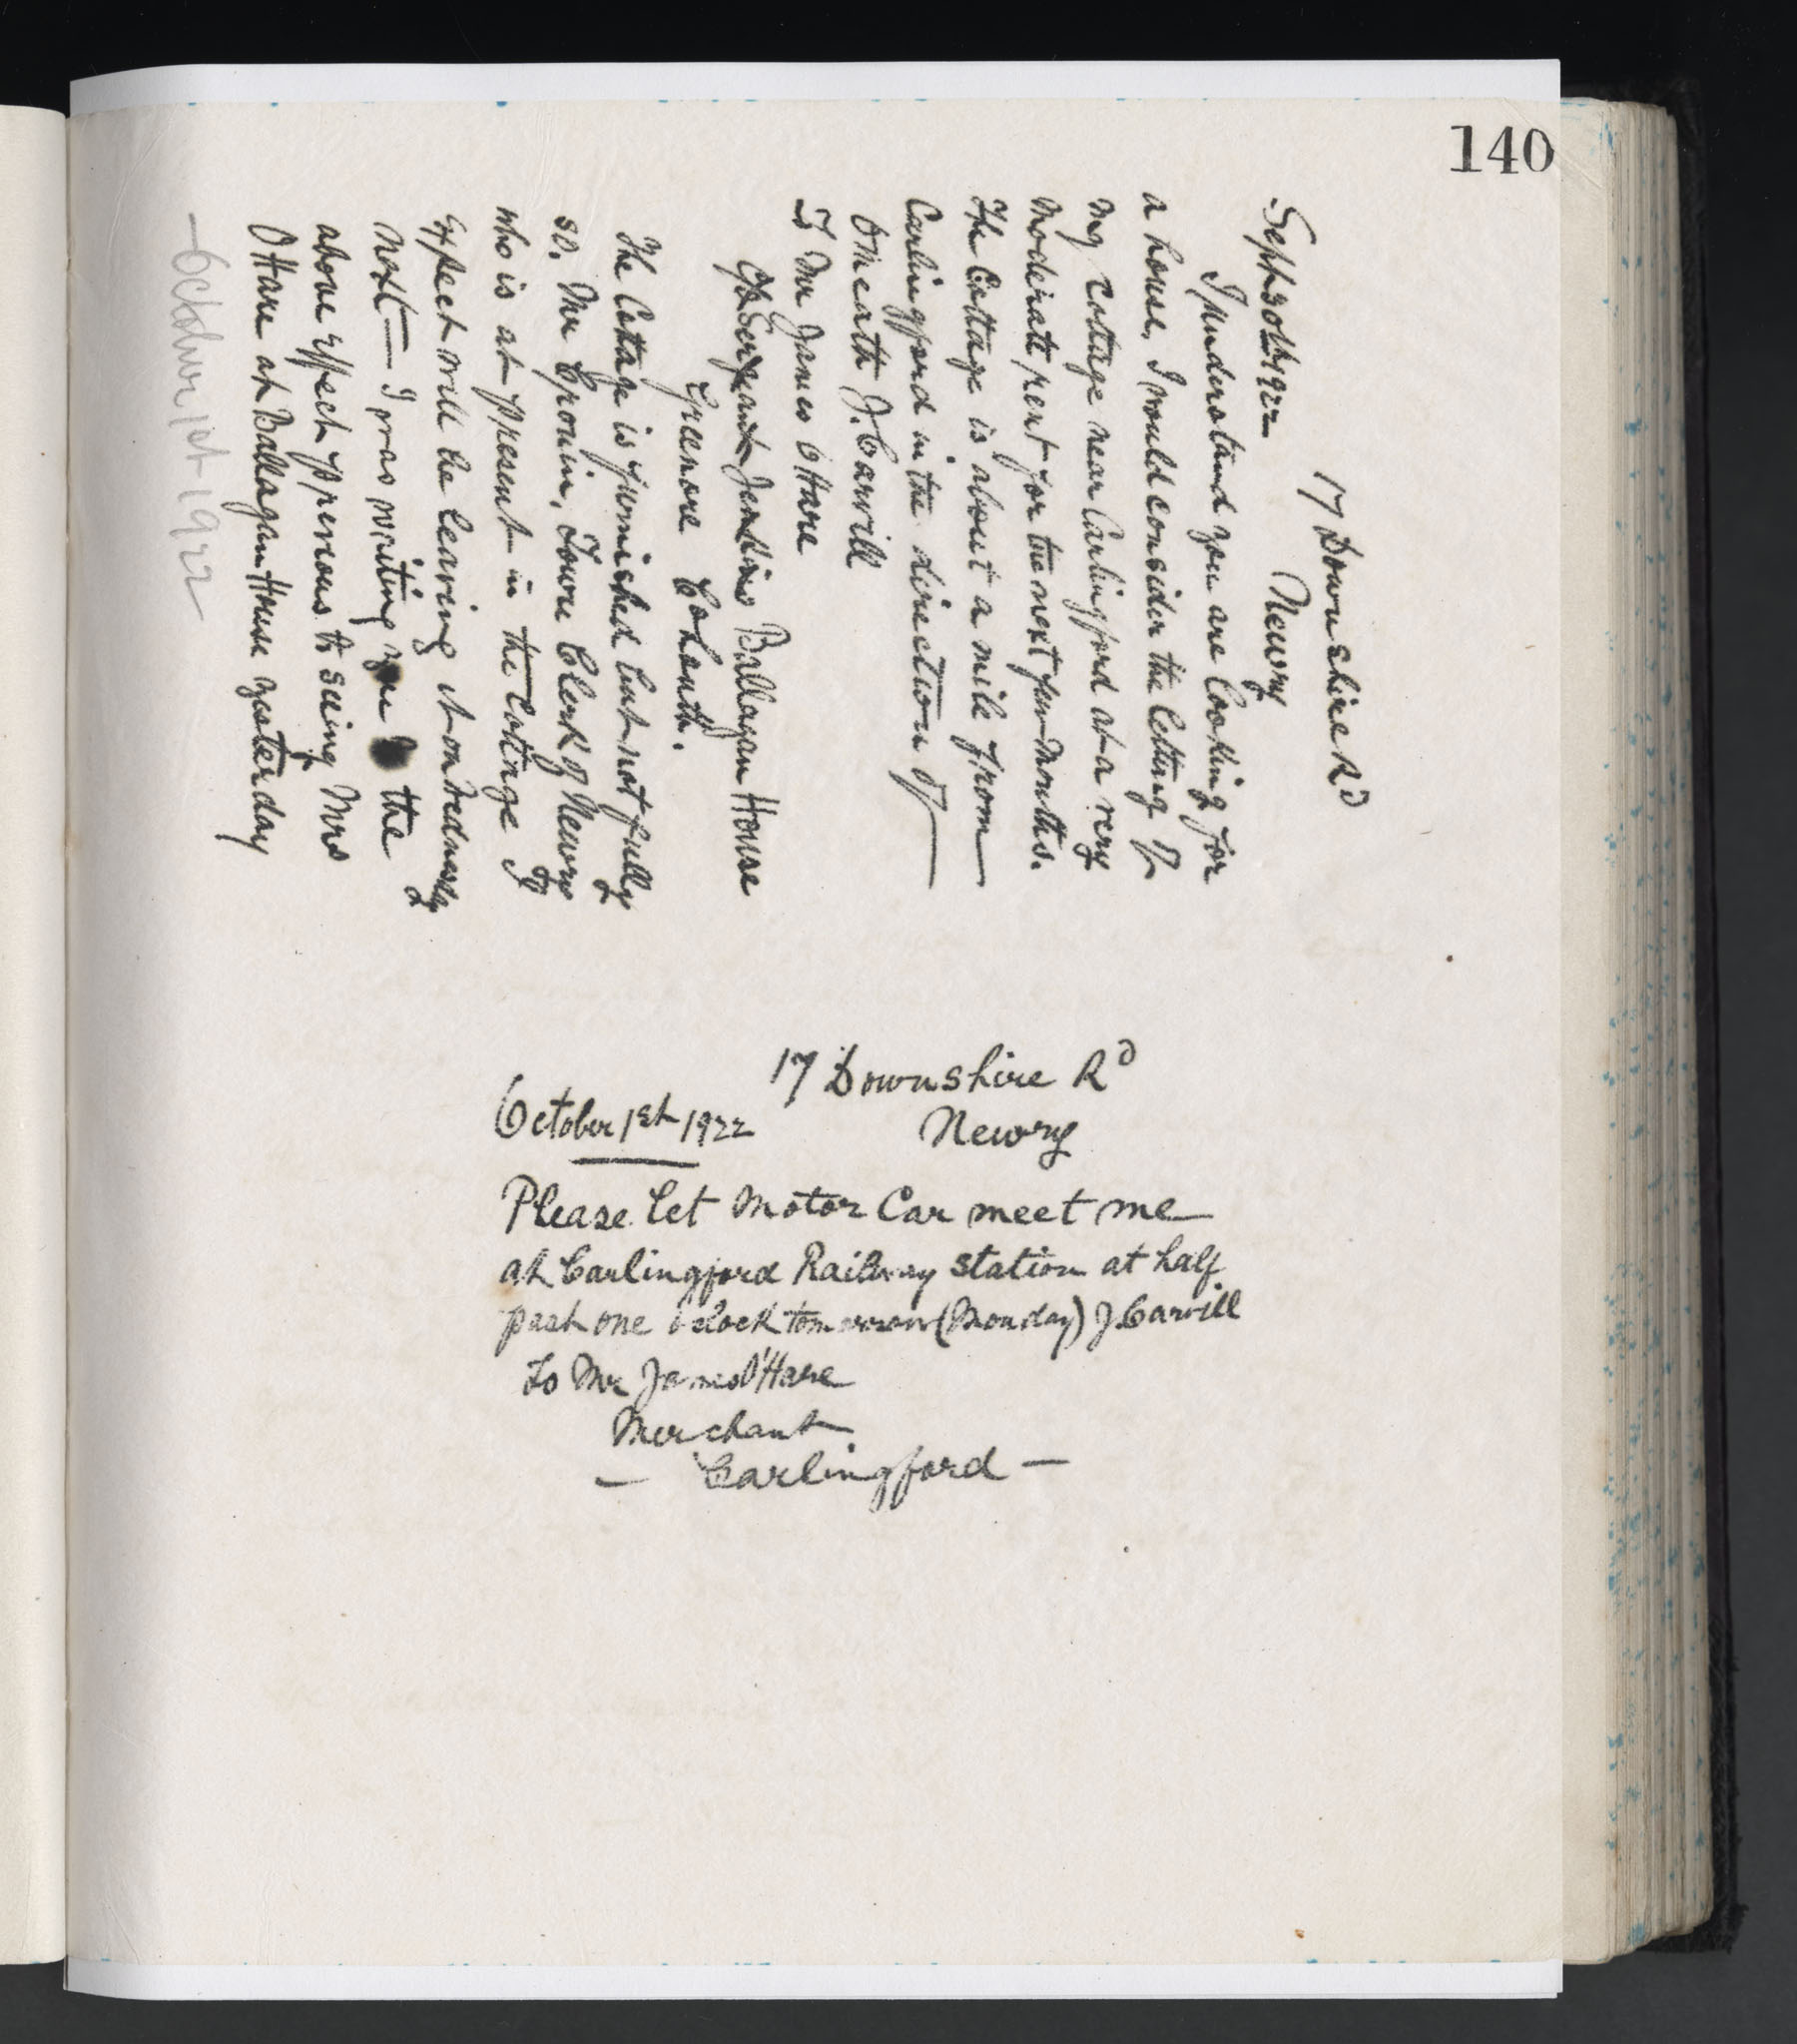 140
17 Downshire Rd
Newry
Sept 30th 1922
I understand you are looking for
a house, I would consider the letting of
my cottage near Carlingford at a very
moderate rent for the next few months.
The Cottage is about a mile from
Carlingford in the direction of
Omeath J. Carvill
To Mr James O Hare
C/o Sergeant Jenkins Ballagan House
Greenore Co Louth.
The Cottage is furnished but not fully
so. Mr Cronin, Town Clerk of Newry
who is at present in the Cottage I
expect will be leaving it on Wednesday
next — I was writing you the
above effect previous to seeing Mrs
O Hare at Ballagan House yesterday
— October 1st 1922
17 Downshire Rd
Newry
October 1st 1922
Please let Motor Car meet me
at Carlingford Railway Station at half
past one o'clock tomorrow (Monday) J Carvill
To Mr James O'Hare
Merchant
— Carlingford —